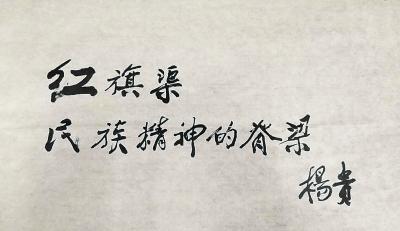 红旗渠
民族精神的脊梁
楊貴